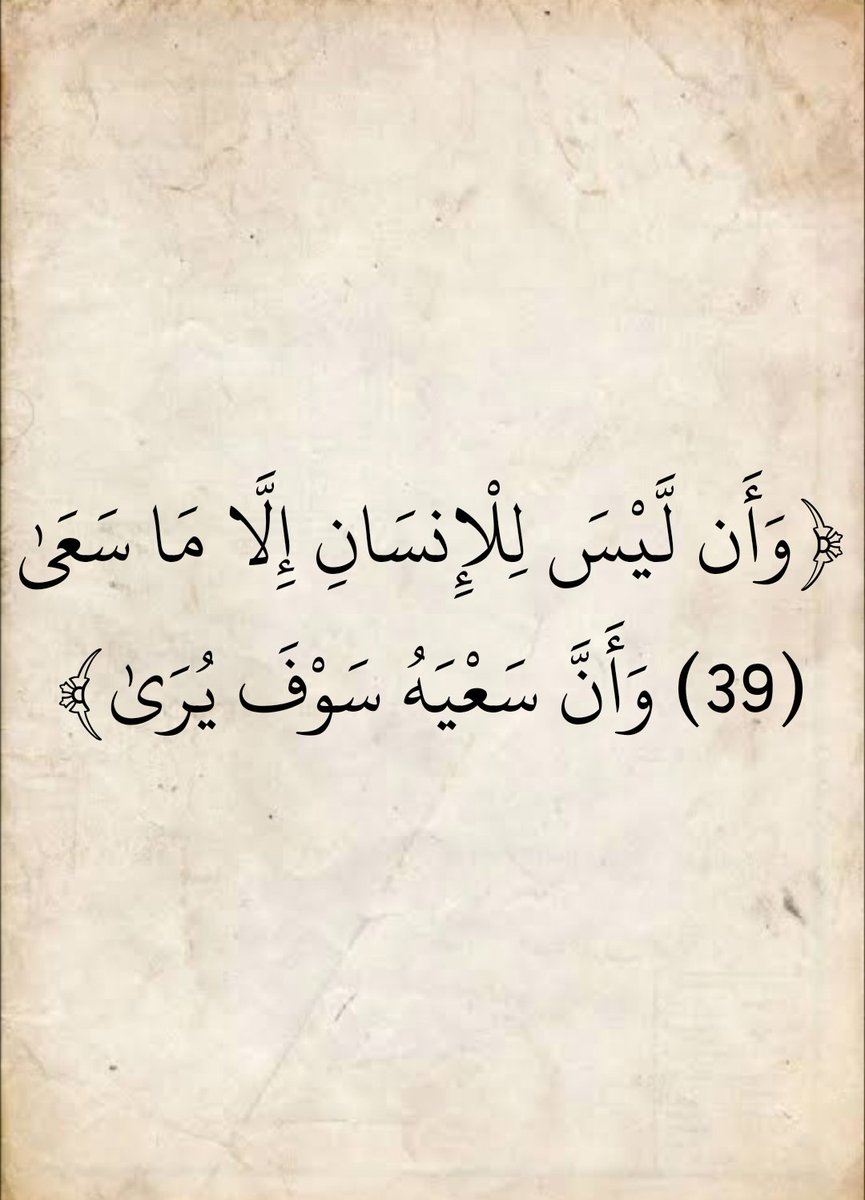 ﴿وَأَن لَّيْسَ لِلْإِنسَانِ إِلَّا مَا سَعَىٰ
(39) وَأَنَّ سَعْيَهُ سَوْفَ يُرَىٰ﴾